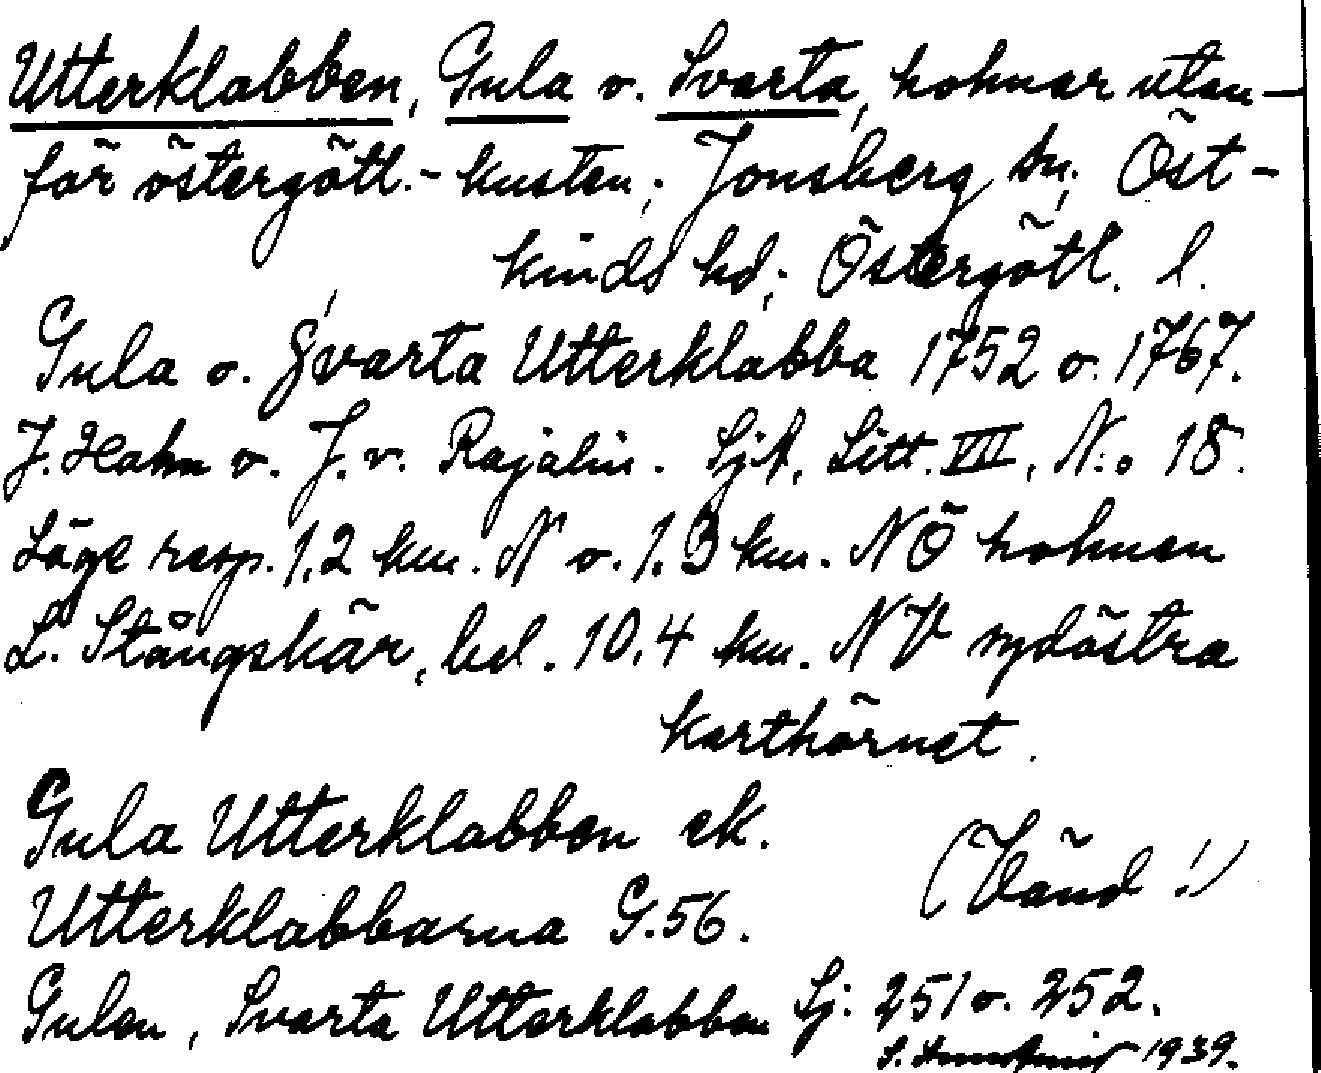 Utterklabben, Gula o. Svarta, holmar utan-
för östergötl.-kusten; Jonsberg sn; Öst-
kinds hd; Östergötl. l.
Gula o. Svarta Utterklabba 1752 o. 1767.
J. Hahn o. J. v. Rajalin. SjA, Litt. VII, N:o 18.
Läge resp. 1.2 km. N o. 1.3 km. NÖ holmen
L. Stångskär, bel. 10.4 km. NV sydöstra
karthörnet.
Gula Utterklabben ek.
(Vänd!)
Utterklabbarna G.56.
Gulan, Svarta Utterklabben Sj. 251 o. 252.
S. 1939.